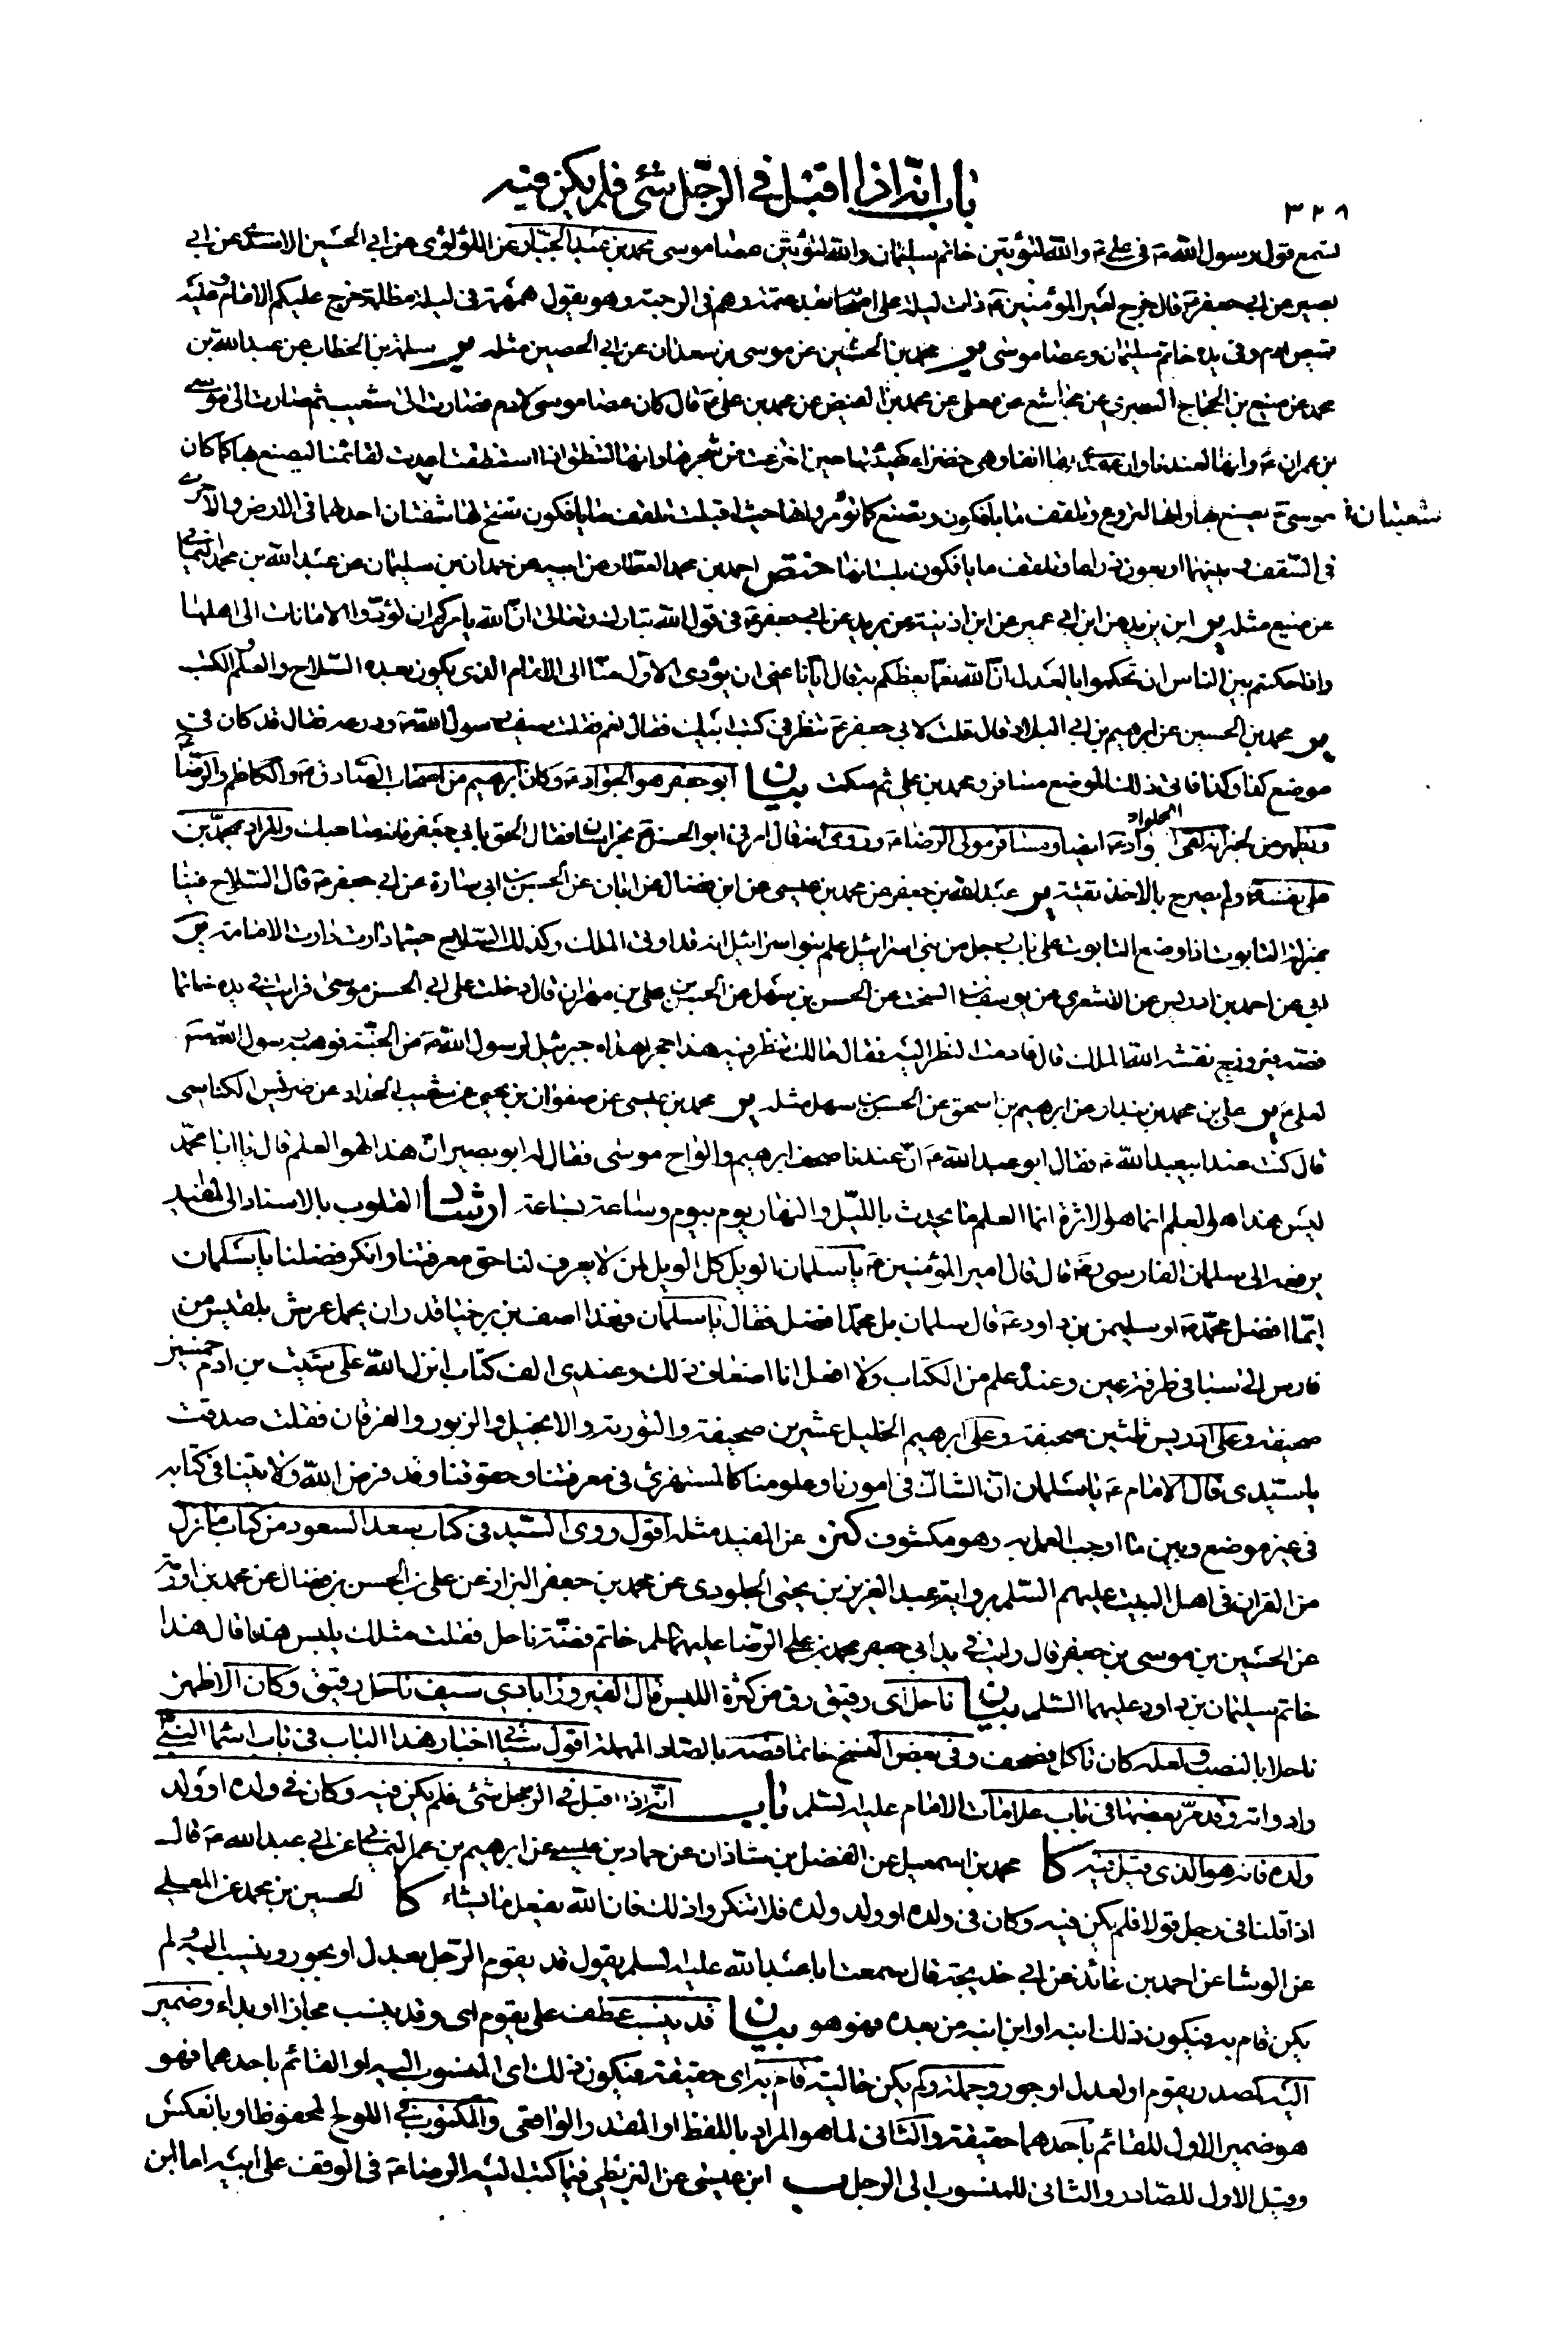 باب انه اذا قيل في الرجل شئ فلم يكن فيه
٣٢٨
تسمع قول رسول الله ص في علي ع والله لتؤتين خاتم سليمان والله لتؤتين عصا موسى محمد بن عبد الجبار عن اللؤلؤي عن ابي الحسين الاسدي عن ابي
بصير عن ابي جعفر ع قال خرج امير المؤمنين ع ذات ليلة على اصحابه بعد عتمة وهم في الرحبة وهو يقول همهمة في ليلة مظلمة خرج عليكم الامام وعليه
قميص ادم وفي يده خاتم سليمان وعصا موسى ير محمد بن الحسين عن موسى بن سعدان عن ابي الحصين مثله ير سلمة بن الخطاب عن عبد الله بن
محمد عن منيع بن الحجاج البصري عن مجاشع عن معلى عن محمد بن الفيض عن محمد بن علي ع قال كان عصا موسى لادم فصارت الى شعيب ثم صارت الى موسى
بن عمران ع وانها لعندنا وان عهدي بها انفا وهي خضراء كهيئتها حين انتزعت من شجرها وانها لتنطق اذا استنطقت اعدت لقائمنا ليصنع بها كما كان
موسى ع يصنع بها وانها لتروع وتلقف ما يافكون وتصنع كما تؤمر وانها حيث اقبلت تلقف ما يافكون تفتح لها شفتان احدهما في الارض والاخرى
شعبتان
في السقف وبينهما اربعون ذراعا وتلقف ما يافكون بلسانها ختص احمد بن محمد العطار عن ابيه عن حمدان بن سليمان عن عبد الله بن محمد اليماني
عن منيع مثله ير ابن يزيد عن ابن ابي عمير عن ابن اذينة عن بريد عن ابي جعفر ع في قول الله تبارك وتعالى ان الله يامركم ان تؤدوا الامانات الى اهلها
واذا حكمتم بين الناس ان تحكموا بالعدل ان الله نعما يعظكم به قال ايانا عنى ان يؤدي الاول منا الى الامام الذي يكون بعده السلاح والعلم والكتب
ير محمد بن الحسين عن ابرهيم بن ابي البلاد قال قلت لابي جعفر ع تنظر في كتب ابيك فقال نعم فقلت سيف رسول الله ص ودرعه فقال قد كان في
موضع كذا وكذا فاتى ذلك الموضع مسافر ومحمد بن علي ثم سكت بيان ابو جعفر هو الجواد ع وكان ابرهيم من اصحاب الصادق ع والكاظم والرضا ع
ويظهر من الخبر انه لقي الجواد ع ايضا ومسافر مولى الرضا ع وروى انه قال امرني ابو الحسن ع بخراسان فقال الحق بابي جعفر فانه صاحبك والمراد بمحمد بن
علي نفسه ع ولم يصرح بالاخذ تقية ير عبد الله بن جعفر عن محمد بن عيسى عن ابن فضال عن ابان عن الحسين بن ابي سارة عن ابي جعفر ع قال السلاح فينا
بمنزلة التابوت اذا وضع التابوت على باب رجل من بني اسرائيل علم بنو اسرائيل انه قد اوتي الملك وكذلك السلاح حيثما دارت دارت الامامة
ابي عن احمد بن ادريس عن الاشعري عن يوسف بن السخت عن الحسن بن سهل عن الحسن بن علي بن مهران قال دخلت على ابي الحسن موسى فرايت في يده خاتما
فصه فيروزج نقشه الله الملك قال فادمت النظر اليه فقال مالك تنظر فيه هذا حجر اهداه جبرئيل لرسول الله ص من الجنة فوهبه رسول الله ص
لعلي ع علي بن محمد بن بندار عن ابرهيم بن اسحق عن الحسن بن سهل مثله ير محمد بن عيسى عن صفوان بن يحيى عن شعيب الحداد عن ضريس الكناسي
قال كنت عند ابي عبد الله ع فقال ابو عبد الله ع ان عندنا صحف ابرهيم والواح موسى فقال له ابو بصير ان هذا لهو العلم قال يا ابا محمد
ليس هذا هو العلم انما هو لاثرة انما العلم ما يحدث بالليل والنهار يوم بيوم وساعة بساعة ارشاد القلوب بالاسناد الى المفيد
يرفعه الى سلمان الفارسي رض قال قال امير المؤمنين ع يا سلمان الويل كل الويل لمن لا يعرف لنا حق معرفتنا وانكر فضلنا يا سلمان
ايما افضل محمد ص او سليمن بن داود ع قال سلمان بل محمد افضل فقال يا سلمان فهذا اصف بن برخيا قدر ان يحمل عرش بلقيس من
فارس الى سبا في طرفة عين وعنده علم من الكتاب ولا افعل انا اضعاف ذلك وعندي الف كتاب انزل الله على شيث بن ادم خمسين
صحيفة وعلى ادريس ثلثين صحيفة وعلى ابرهيم الخليل عشرين صحيفة والتورية والانجيل والزبور والفرقان فقلت صدقت
يا سيدي قال الامام ع يا سلمان ان الشاك في امورنا وعلومنا كالمستهزئ في معرفتنا وحقوقنا وقد فرض الله ولايتنا في كتابه
في غير موضع وبين ما اوجب العمل به وهو مكشوف كنز عن المفيد مثله اقول روى السيد في كتاب سعد السعود من كتاب ما نزل
من القران في اهل البيت عليهم السلم برواية عبد العزيز بن يحيى الجلودي عن محمد بن جعفر البزاز عن علي بن الحسن بن فضال عن محمد بن اورمة
عن الحسين بن موسى بن جعفر قال رايت في يد ابي جعفر محمد بن علي الرضا عليهما السلم خاتم فضة ناحل فقلت مثلك يلبس هذا قال هذا
خاتم سليمان بن داود عليهما السلم بيان ناحل اي رقيق رق من كثرة اللبس قال الفيروزابادي سيف ناحل رقيق وكان الاظهر
ناحلا بالنصب ولعله كان ناكل فصحف وفي بعض النسخ خاتما فصه بالصاد المهملة اقول سياتي اخبار هذا الباب في باب اسماء النبي
وادواته وقد مر بعضها في باب علامات الامام عليه السلم باب انه اذا قيل في الرجل شئ فلم يكن فيه وكان في ولده او ولد
ولده فانه هو الذي قيل فيه كا محمد بن اسمعيل عن الفضل بن شاذان عن حماد بن عيسى عن ابرهيم بن عمر اليماني عن ابي عبد الله ع قال
اذا قلنا في رجل قولا فلم يكن فيه وكان في ولده او ولد ولده فلا تنكروا ذلك فان الله يفعل ما يشاء كا الحسين بن محمد عن المعلى
عن الوشا عن احمد بن عائذ عن ابي خديجة قال سمعت ابا عبد الله عليه السلم يقول قد يقوم الرجل بعدل او بجور وينسب اليه ولم
يكن قام به فيكون ذلك ابنه او ابن ابنه من بعده فهو هو بيان قد ينسب عطف على يقوم اي وقد ينسب مجازا او بداء وضمير
اليه لمصدر يقوم او لعدل او جور وجملة ولم يكن حالية قام به اي حقيقة فيكون ذلك اي المنسوب اليه او القائم باحدهما فهو
هو ضمير الاول للقائم باحدهما حقيقة والثاني لما هو المراد باللفظ او المقدر الواقعي والمكتوب في اللوح المحفوظ او بالعكس
وقيل الاول للصادر والثاني للمنسوب الى الرجل ب ابن عيسى عن البزنطي فيما كتب اليه الرضا ع في الوقف على ابيه اما ابن